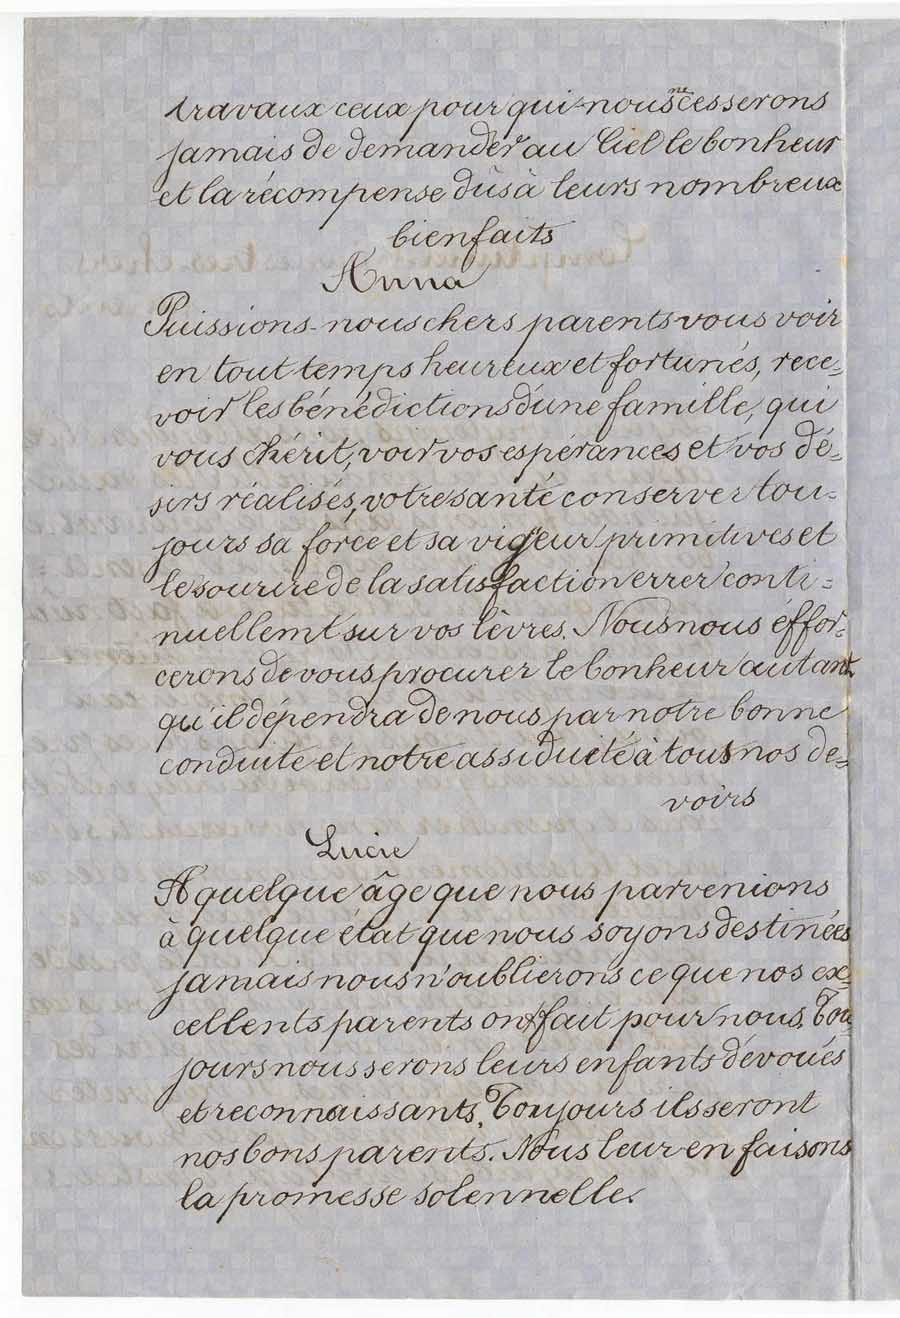 travaux ceux pour qui nous ne cesserons
jamais de demander au Ciel le bonheur
et la récompense dûs à leurs nombreux
bienfaits
Anna
Puissions-nous chers parents vous voir
en tout temps heureux et fortunés, rece=
voir les bénédictions d'une famille, qui
vous chérit, voir vos espérances et vos dé=
sirs réalisés, votre santé conserver tou=
jours sa force et sa vigeur primitives et
le sourire de la satisfaction errer conti=
nuellemt sur vos lèvres. Nous nous éffor=
cerons de vous procurer le bonheur autant
qu'il dépendra de nous par notre bonne
conduite et notre assiduité à tous nos de=
voirs
Lucie
A quelque âge que nous parvenions
à quelque état que nous soyons destinées
jamais nous n'oublierons ce que nos ex=
cellents parents ont fait pour nous. Tou=
jours nous serons leurs enfants dévoués
et reconnaissants. Toujours ils seront
nos bons parents. Nous leur en faisons
la promesse solennelle.